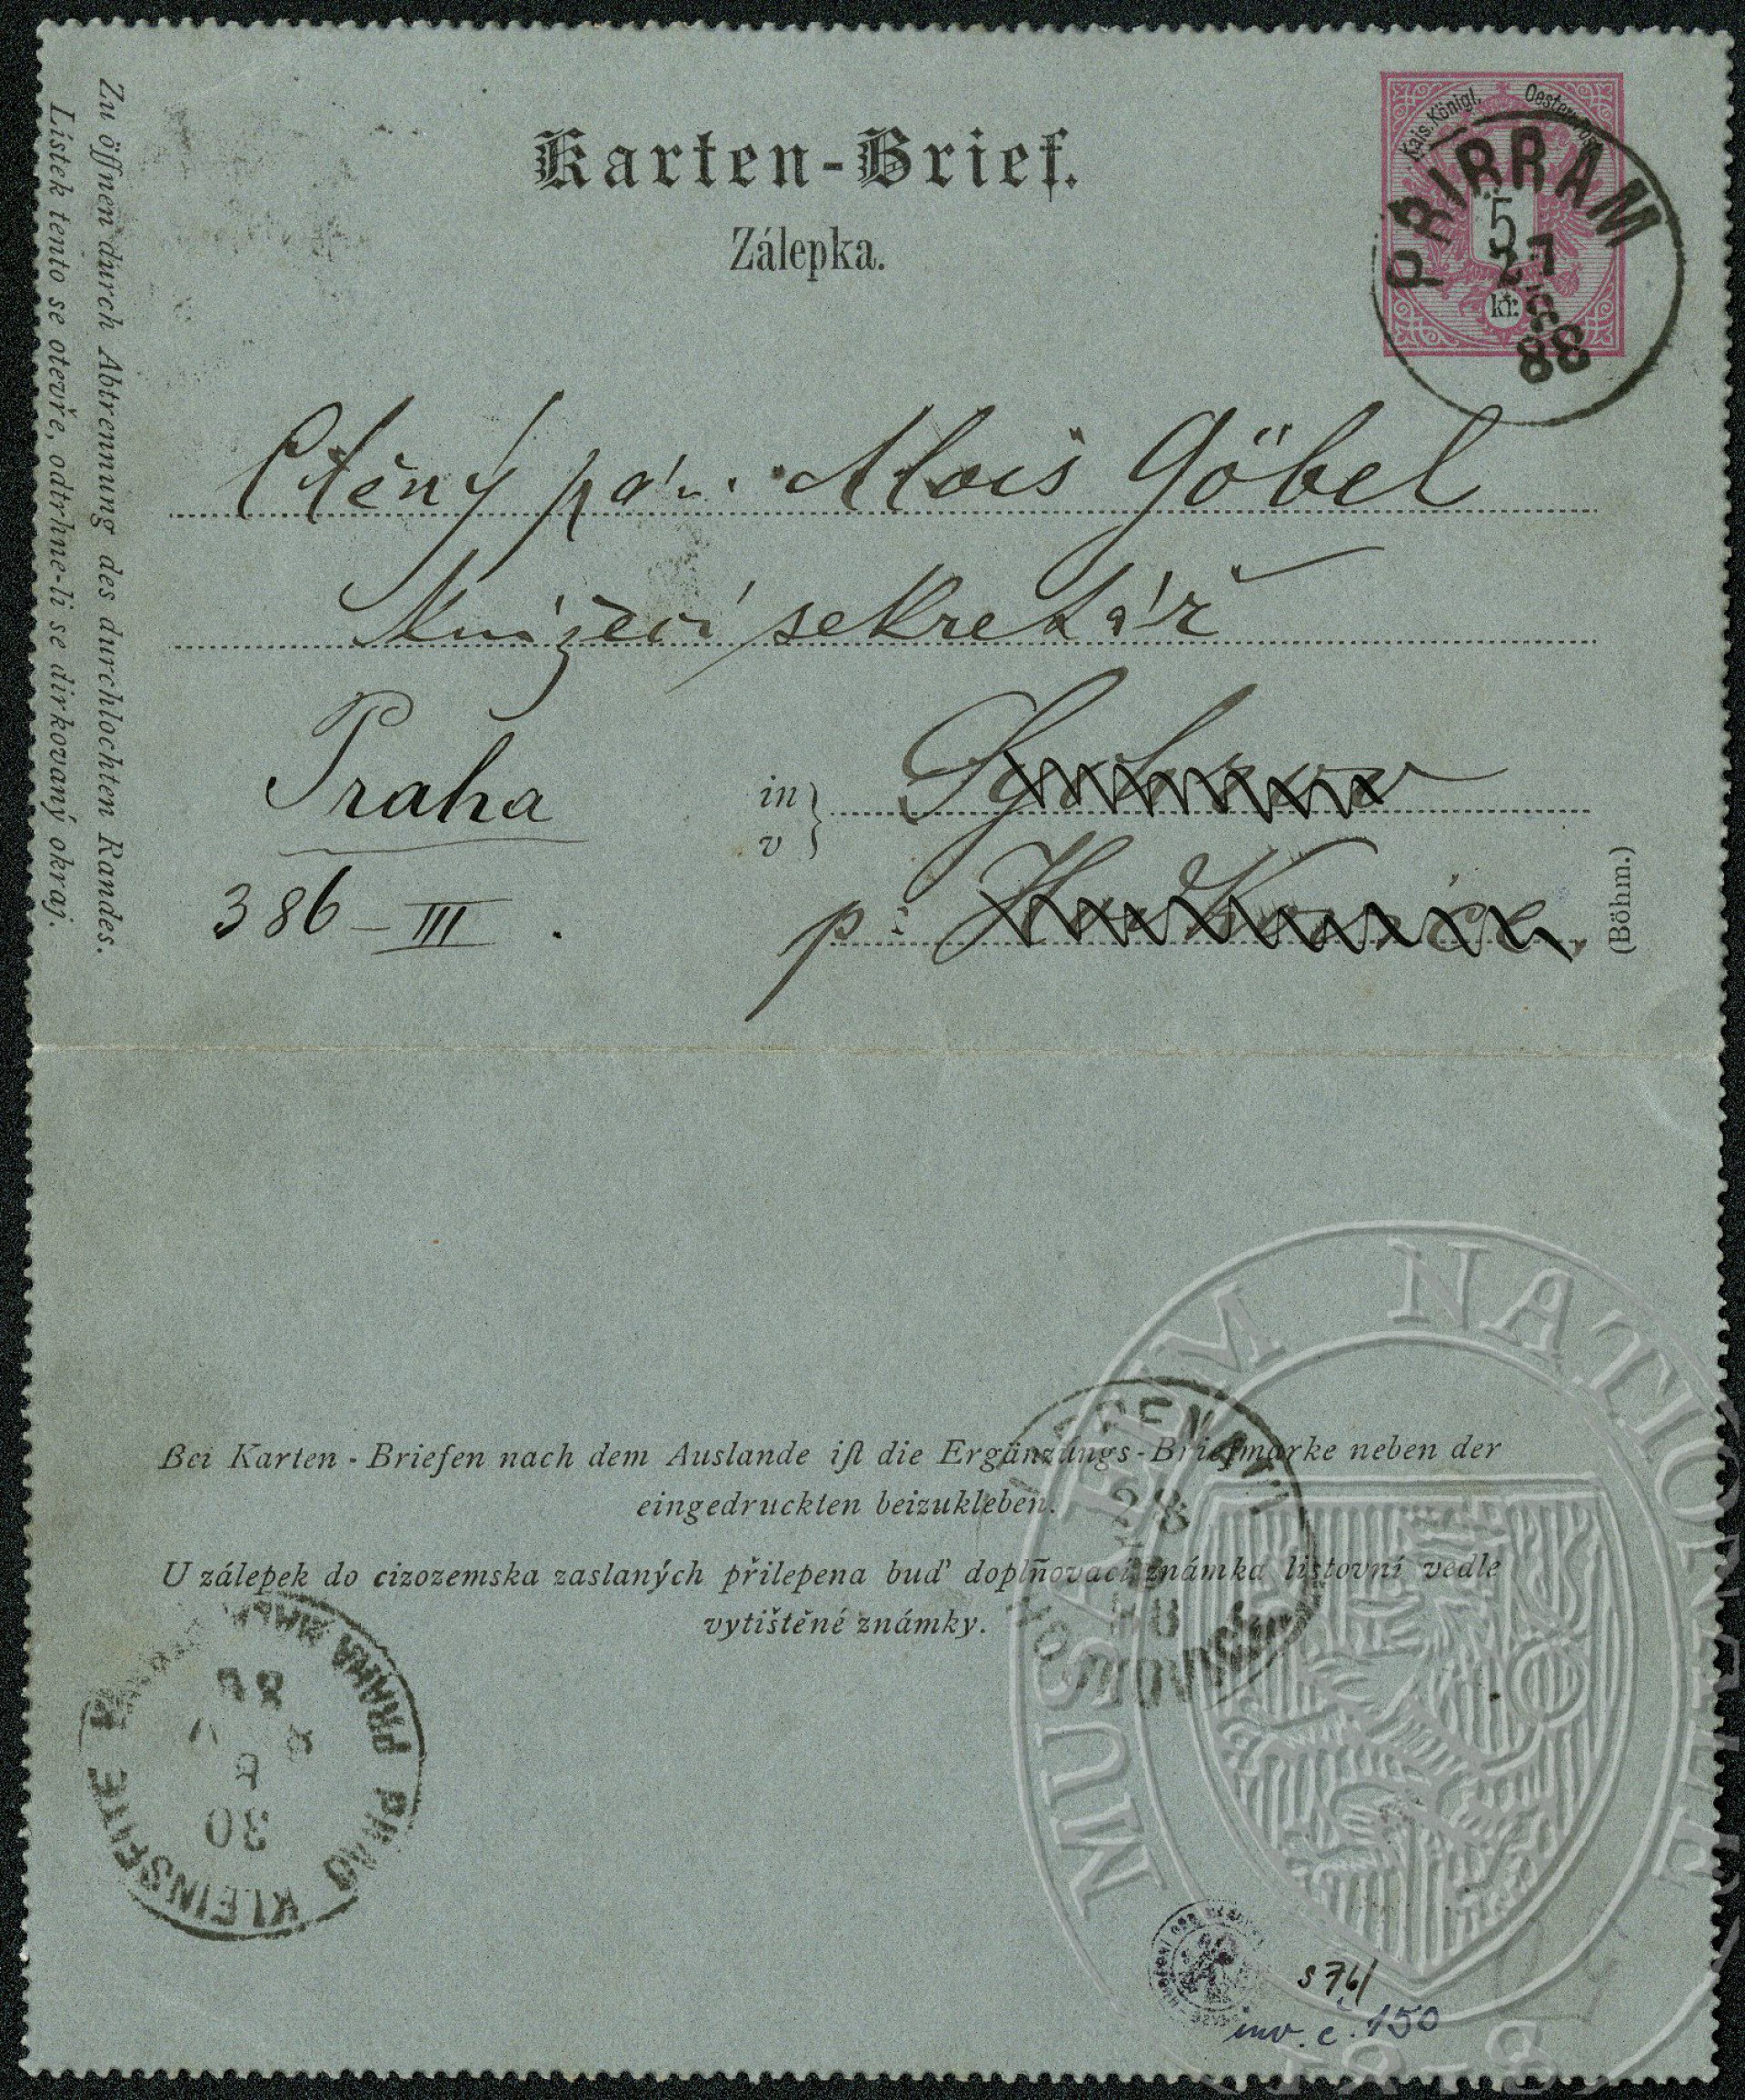 Karten-Brief.
Zálepka.
Kais. Königl.
5
kr.
PŘIBRAM
27
88
Zu öffnen durch Abtrennung des durchlochten Randes.
Lístek tento se otevře, odtrhne-li se dirkovaný okraj.
Ctěný pán Alois Göbel
Knížecí sekretář
Praha
in
v
Sychrow
386-III.
p.
(Böhm.)
Bei Karten-Briefen nach dem Auslande ist die Ergänzungs-Briefmarke neben der
eingedruckten beizukleben.
U zálepek do cizozemska zaslaných přilepena buď doplňovací známka listovní vedle
vytištěné známky.
28
88
PRAG KLEINSEITE
PRAHA MALÁ
88
30
MUSAEUM NATIONALE
1818
S 76/
inv. č. 150